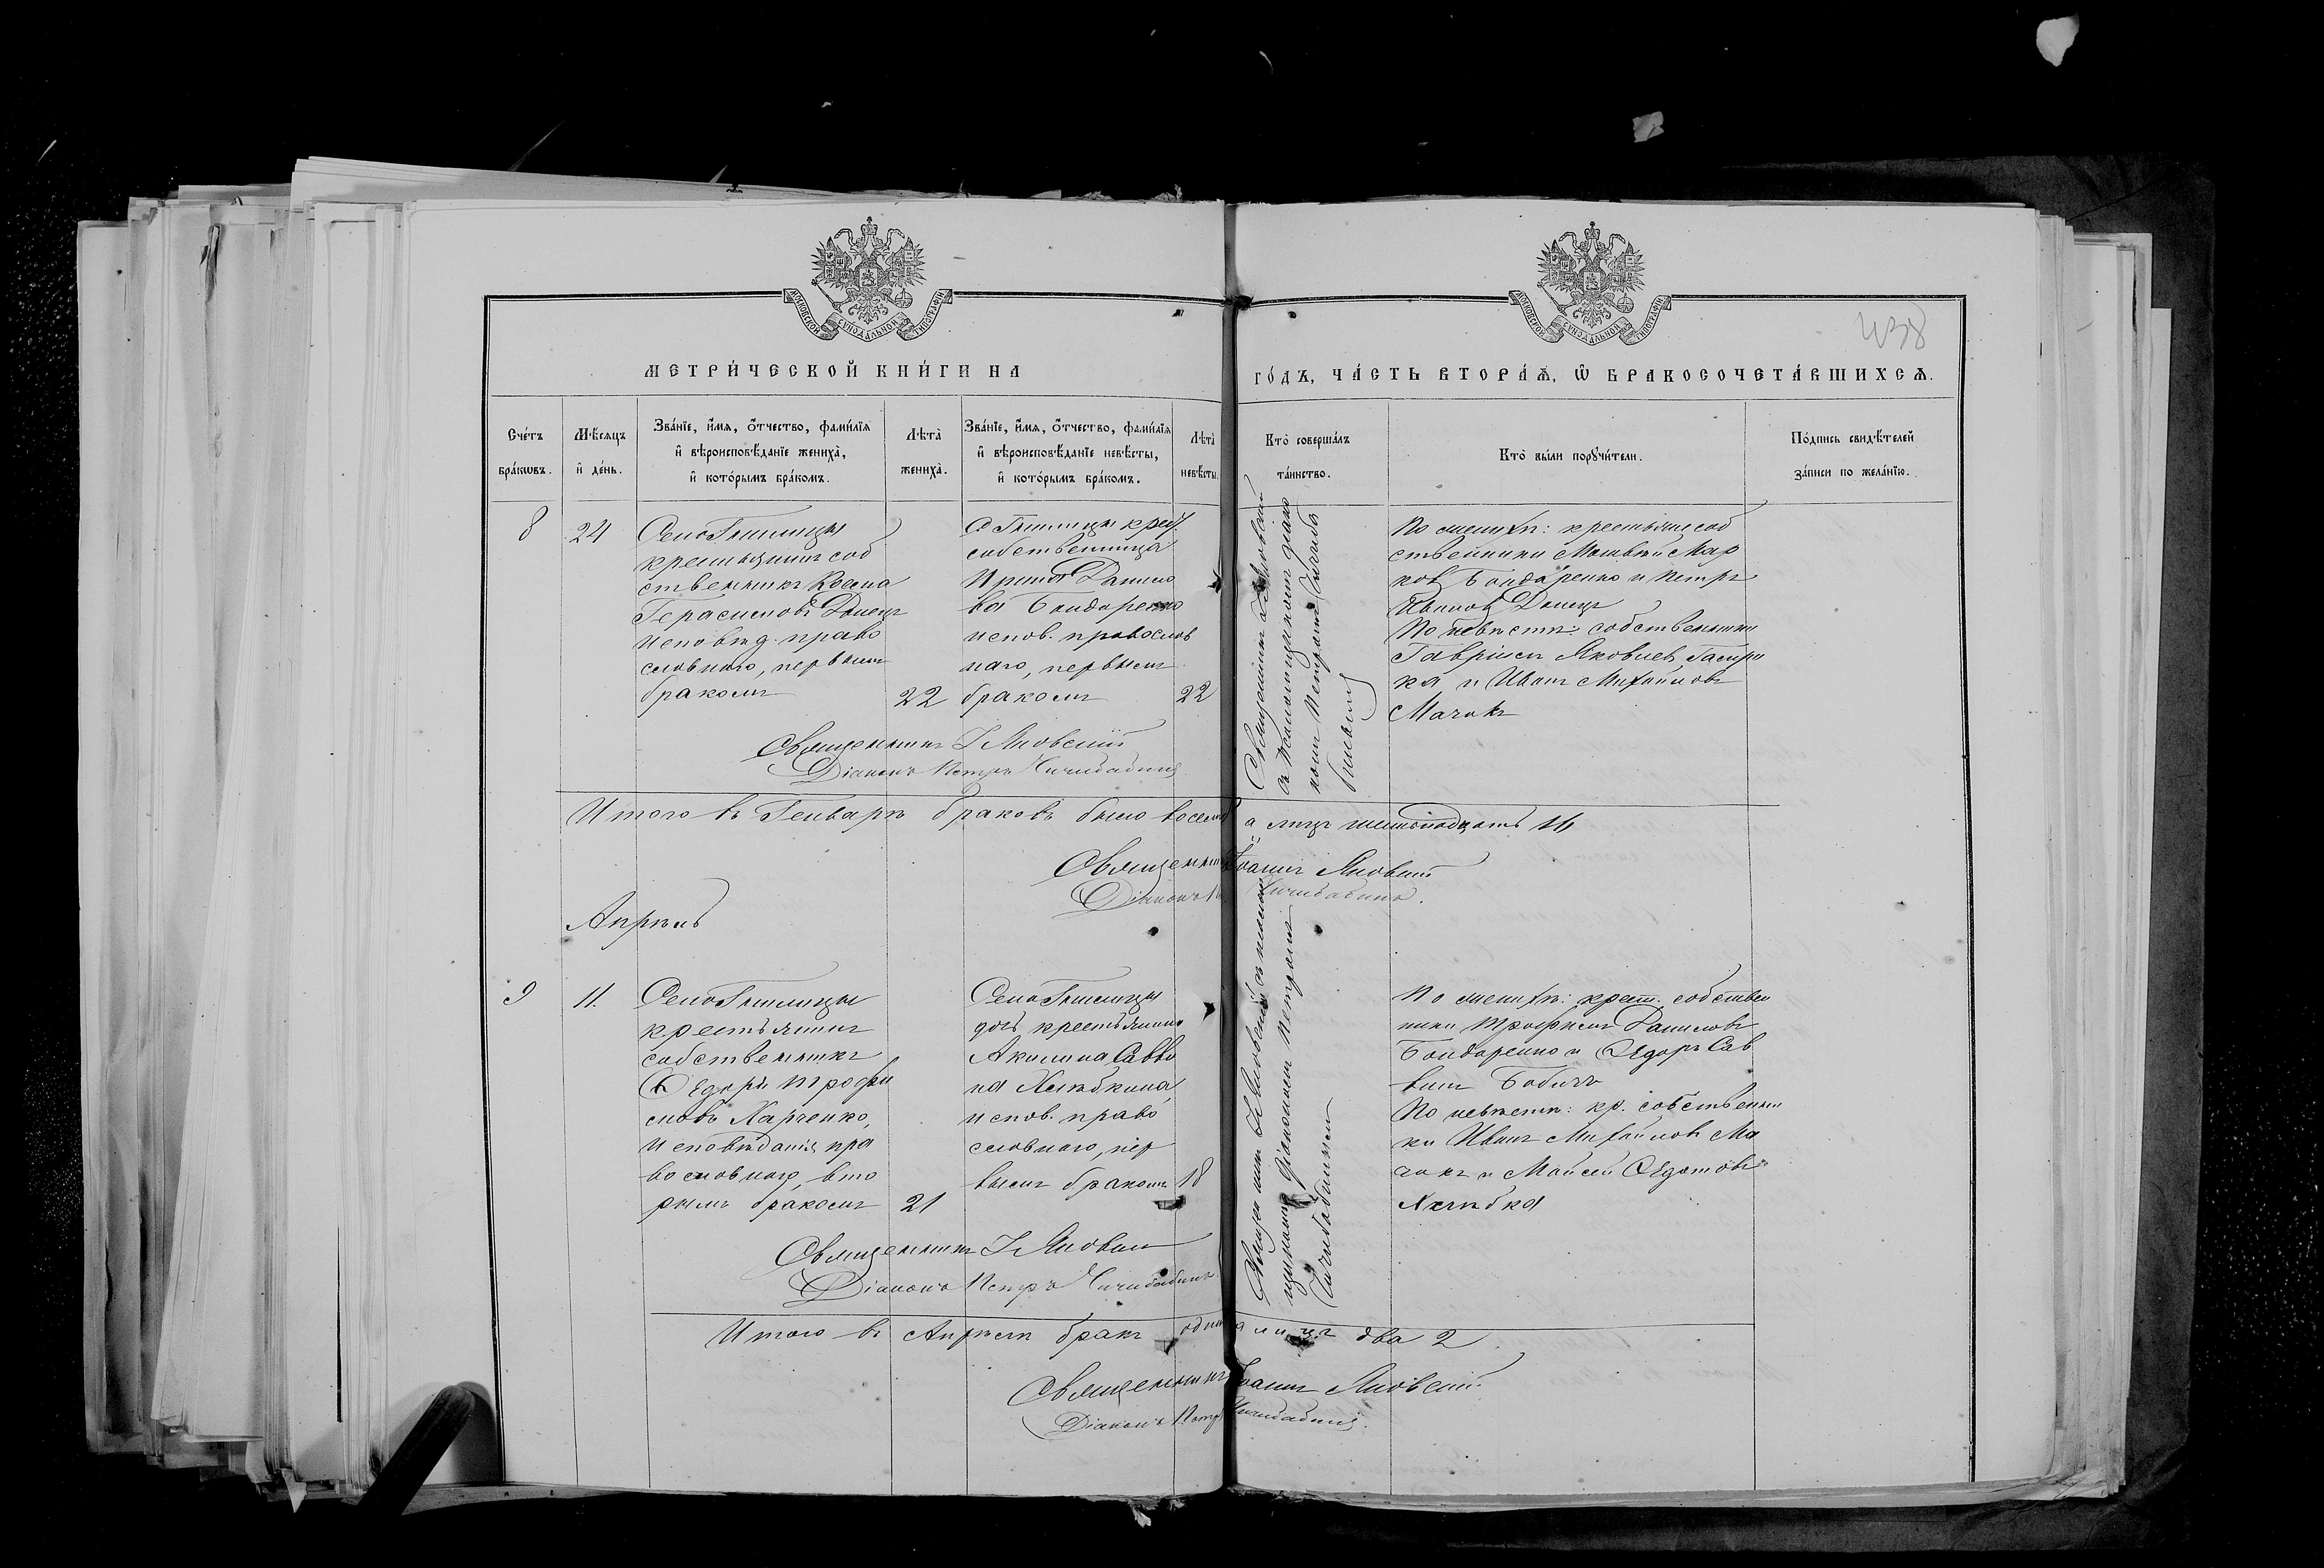 МОСКОВСКОЙ СУНОДАЛЬНОЙ ТИПОГРАФІИ
МОСКОВСКОЙ СУНОДАЛЬНОЙ ТИПОГРАФІИ
438
МЕТРИ́ЧЕСКОЙ КНИ́ГИ НА
ГО́ДЪ, ЧА́СТЬ ВТОРА́Ѧ, Ѡ БРАКОСОЧЕТА́ВШИХСѦ.
Сче́тъ бра́кѡвъ.
Мѣ́сѧцъ и де́нь.
Зва́нїе, и́мѧ, о́тчество, фами́лїѧ и вѣроисповѣ́данїе жениха̀, и кото́рымъ бра́комъ.
Лѣта̀ жениха̀.
Зва́нїе, и́мѧ, о́тчество, фами́лїѧ и вѣроисповѣ́данїе невѣ́сты, и кото́рымъ бра́комъ.
Лѣта̀ невѣ́сты.
Кто̀ соверша́лъ та́инство.
Кто̀ бы́ли порꙋчи́тели.
По́дпись свидѣ́телей за́писи по жела́нїю.
8
24
Село
крестьянинъ соб
ственникъ Косма
Герасимовъ Донецъ
исповѣд. право
славнаго, первымъ
бракомъ
22
собственница
Данило
ва Бондаренко
испов. православ
наго, первымъ
бракомъ
22
Священникъ
По женихѣ: крестьяне соб
ственники Матвѣй Мар
ковъ Бондаренко и Петръ
Ивановъ Донецъ
По невѣстѣ: собственники
Гавріилъ Яковлевъ
и Иванъ Михайловъ
Мачокъ
Священникъ І. Яновскій
Діаконъ Петръ Чичибабинъ
Итого въ Генварѣ браковъ было восемь а лицъ шестнадцать 16
Священникъ Іоаннъ Яновскій
Діаконъ П. Чичибабинъ.
Апрѣль
9
11.
Село
крестьянинъ
собственникъ
Ѳедоръ Трофи
мовъ Харченко,
исповѣданія пра
вославнаго, вто
рымъ бракомъ
21
Село
дочь крестьянина
Акилина Савви
на Хлѣбкина,
испов. право
славнаго, пер
вымъ бракомъ
18
Діакономъ Петромъ
Чичибабинымъ
По женихѣ: крест. собствен
ники Трофимъ Даниловъ
Бондаренко и Ѳедоръ Сав
винъ Бабичъ
По невѣстѣ: кр. собственни
ки Иванъ Михайловъ Ма
чокъ и Мойсей Ѳедотовъ
Хлѣбка
Священникъ І. Яновскій
Діаконъ Петръ Чичибабинъ
Итого въ Апрѣлѣ бракъ одинъ а лицъ два 2.
Священникъ Іоаннъ Яновскій
Діаконъ Петръ Чичибабинъ.